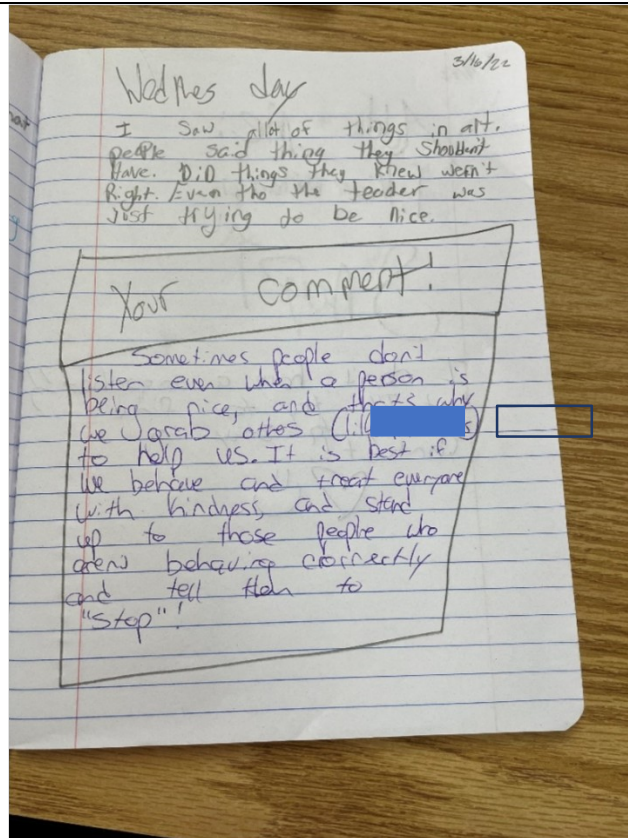 3/16/22
Wednes day
I saw allot of things in art.
people said thing they shouldent
Have. DiD things they knew wern't
Right. Even tho the teader was
Just trying to be Nice.
Your comment!
Sometimes people don't
listen even when a person is
being nice, and thats why
we grab othes
to help us. It is best if
we behave and treat everyone
with kindness, and stand
up to those people who
arent behaving correctly
and tell them to
"Stop"!